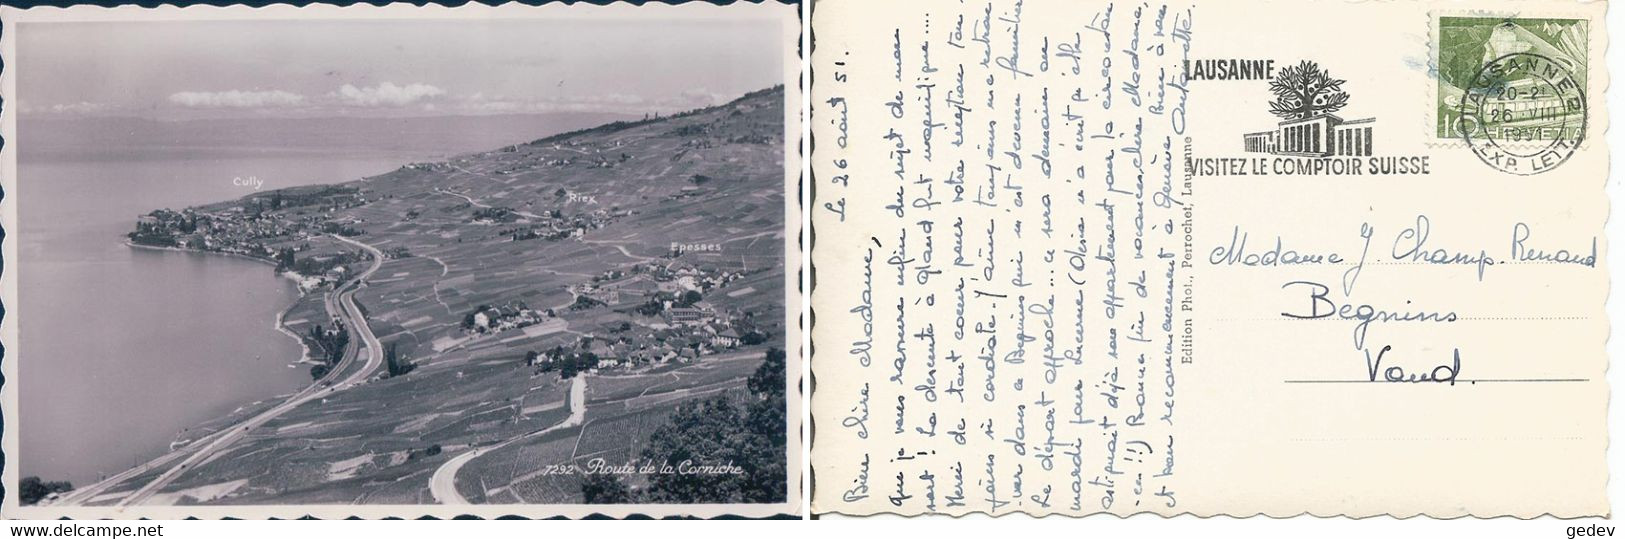 Cully
Riex
Epesses
7292 Route de la Corniche
Le 26 août 51.
Bien chère Madame,
que je vous rassure enfin du sujet de mon
sort! La descente à gland fut magnifique....
Merci de tout coeur pour votre réception tou-
jours si cordiale. J'aime toujours me retrou
ver dans ce Begnins qui m'est devenu familier
Le départ approche... ce sera demain ou
mardi pour Lucerne (Olsia m'a écrit pr être
astiquait déjà son appartement pour la circonstan
ce!!) Bonne fin de vacances, chère Madame,
et bon recommencement à Genève. Bien à vous
Antoinette
Edition Phot., Perrochet, Lausanne
LAUSANNE
VISITEZ LE COMPTOIR SUISSE
LAUSANNE 2
20-21
26. VIII
1951
EXP. LETT.
10 HELVETIA
Madame J. Champ-Renaud
Begnins
Vaud.
gedev